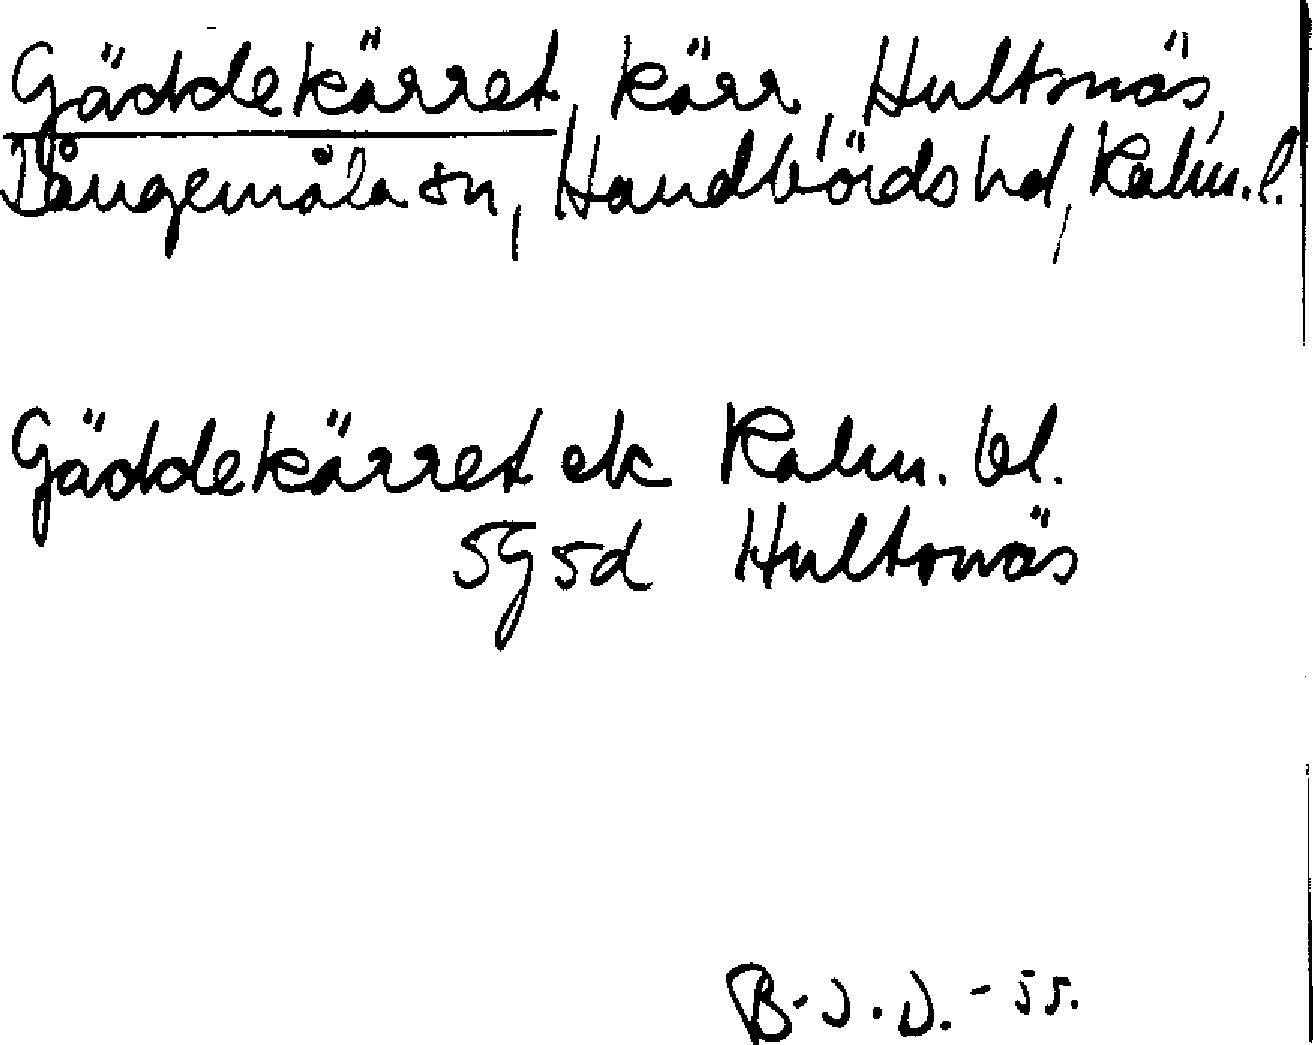 Gäddekärret, kärr, Hultsnäs,
Långemåla sn, Handbörds hd, Kalm. l.
Gäddekärret ek Kalm. bl.
5G5d Hultsnäs
B-J.D.-55.